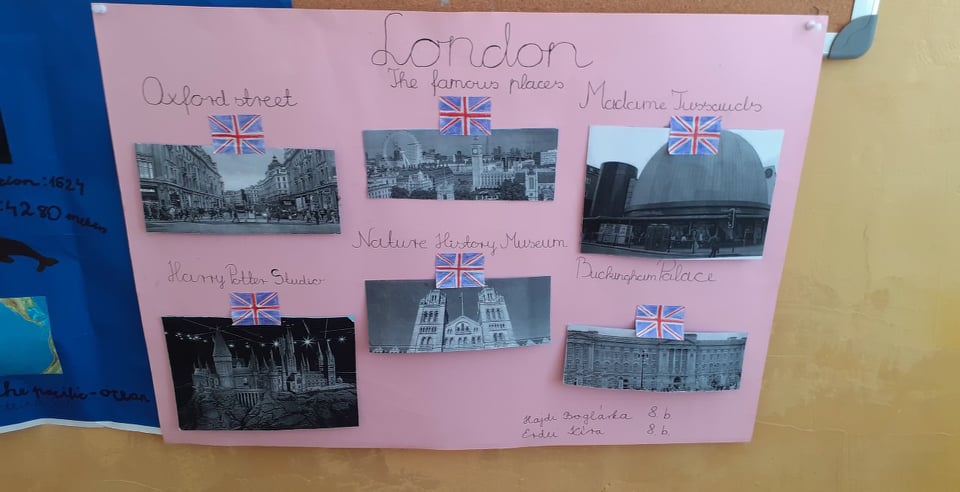 London
The famous places
Oxford street
Madame Tussauds
Nature History Museum
Harry Potter Studio
Buckingham Palace
Hajdi Boglárka 8. b
Erdei Kira 8. b.
: 1624
: 4280
the pacific-ocean